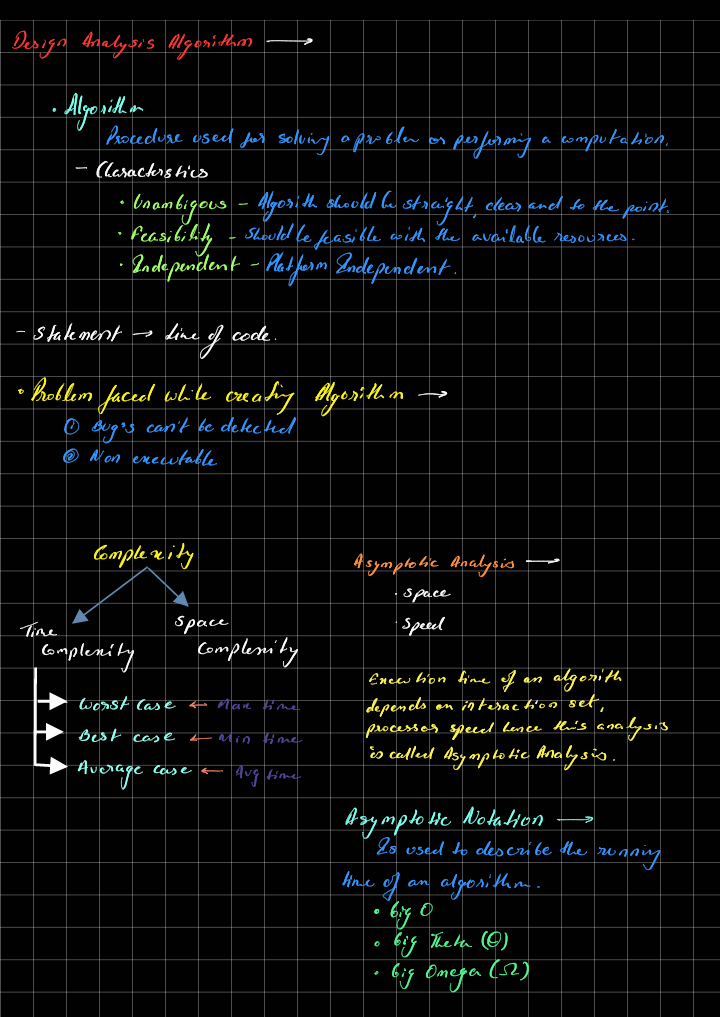 Design Analysis Algorithm →
• Algorithm
Procedure used for solving a problem or performing a computation.
- Characterstics
• Unambigous - Algorith should be straight, clear and to the point.
• Feasibility - Should be feasible with the available resources.
• Independent - Platform Independent.
- Statement → Line of code.
• Problem faced while creating Algorithm →
① Bug's can't be detected
② Non executable
Complexity
Time
Complexity
Space
Complexity
Worst case ← Max time
Best case ← Min time
Average case ← Avg time
Asymptotic Analysis →
· Space
· Speed
Execution time of an algorith
depends on interaction set,
processor speed hence this analysis
is called Asymptotic Analysis.
Asymptotic Notation →
Is used to describe the running
time of an algorithm.
• Big O
• Big Theta (Θ)
• Big Omega (Ω)